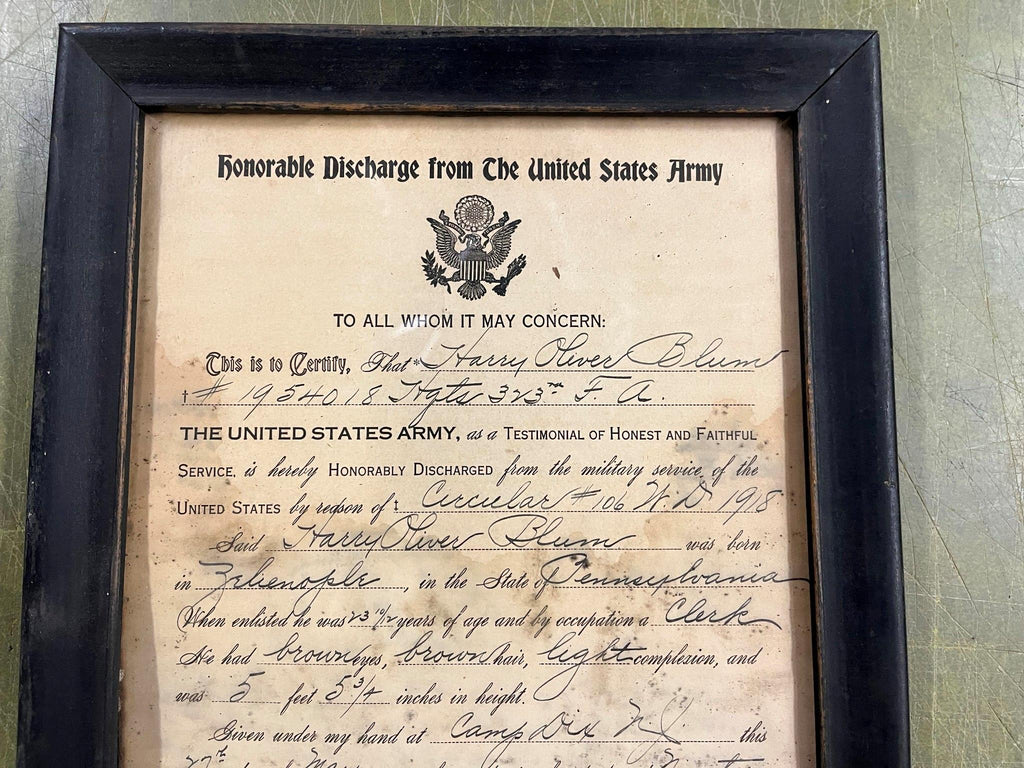 Honorable Discharge from The United States Army
TO ALL WHOM IT MAY CONCERN:
This is to Certify, That* Harry Oliver Blum
† # 1954018 Hqts 323rd F. A.
THE UNITED STATES ARMY, as a TESTIMONIAL OF HONEST AND FAITHFUL
SERVICE, is hereby HONORABLY DISCHARGED from the military service of the
UNITED STATES by reason of ‡ Circular #106 W. D. 1918
Said Harry Oliver Blum was born
in Zelienople, in the State of Pennsylvania
When enlisted he was 23 years of age and by occupation a Clerk
He had brown eyes, brown hair, light complexion, and
was 5 feet 5 3/4 inches in height.
Given under my hand at Camp Dix N J this
27th